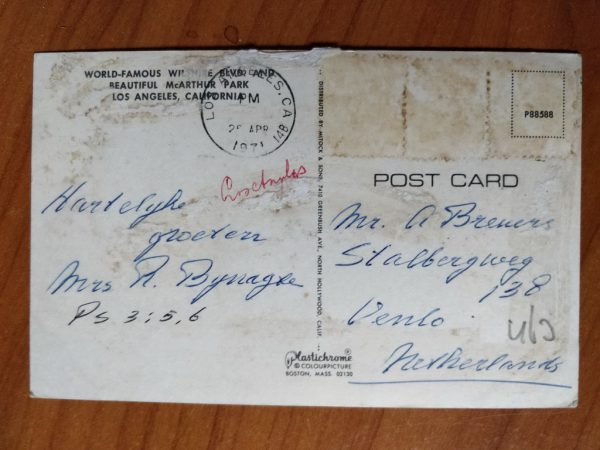 WORLD-FAMOUS WILSHIRE BLVD. AND
BEAUTIFUL McARTHUR PARK
LOS ANGELES, CALIFORNIA
LOS ANGELES, CA
PM
APR
1971
14B
Hartelyke
groeten
Mrs A. Bynagte
Ps 3:5,6
DISTRIBUTED BY MITOCK & SONS, 7410 GREENBUSH AVE., NORTH HOLLYWOOD, CALIF.
Plastichrome®
© COLOURPICTURE
BOSTON, MASS. 02130
P88588
POST CARD
Mr. A Brewers
Stalbergweg
138
Venlo
Netherlands